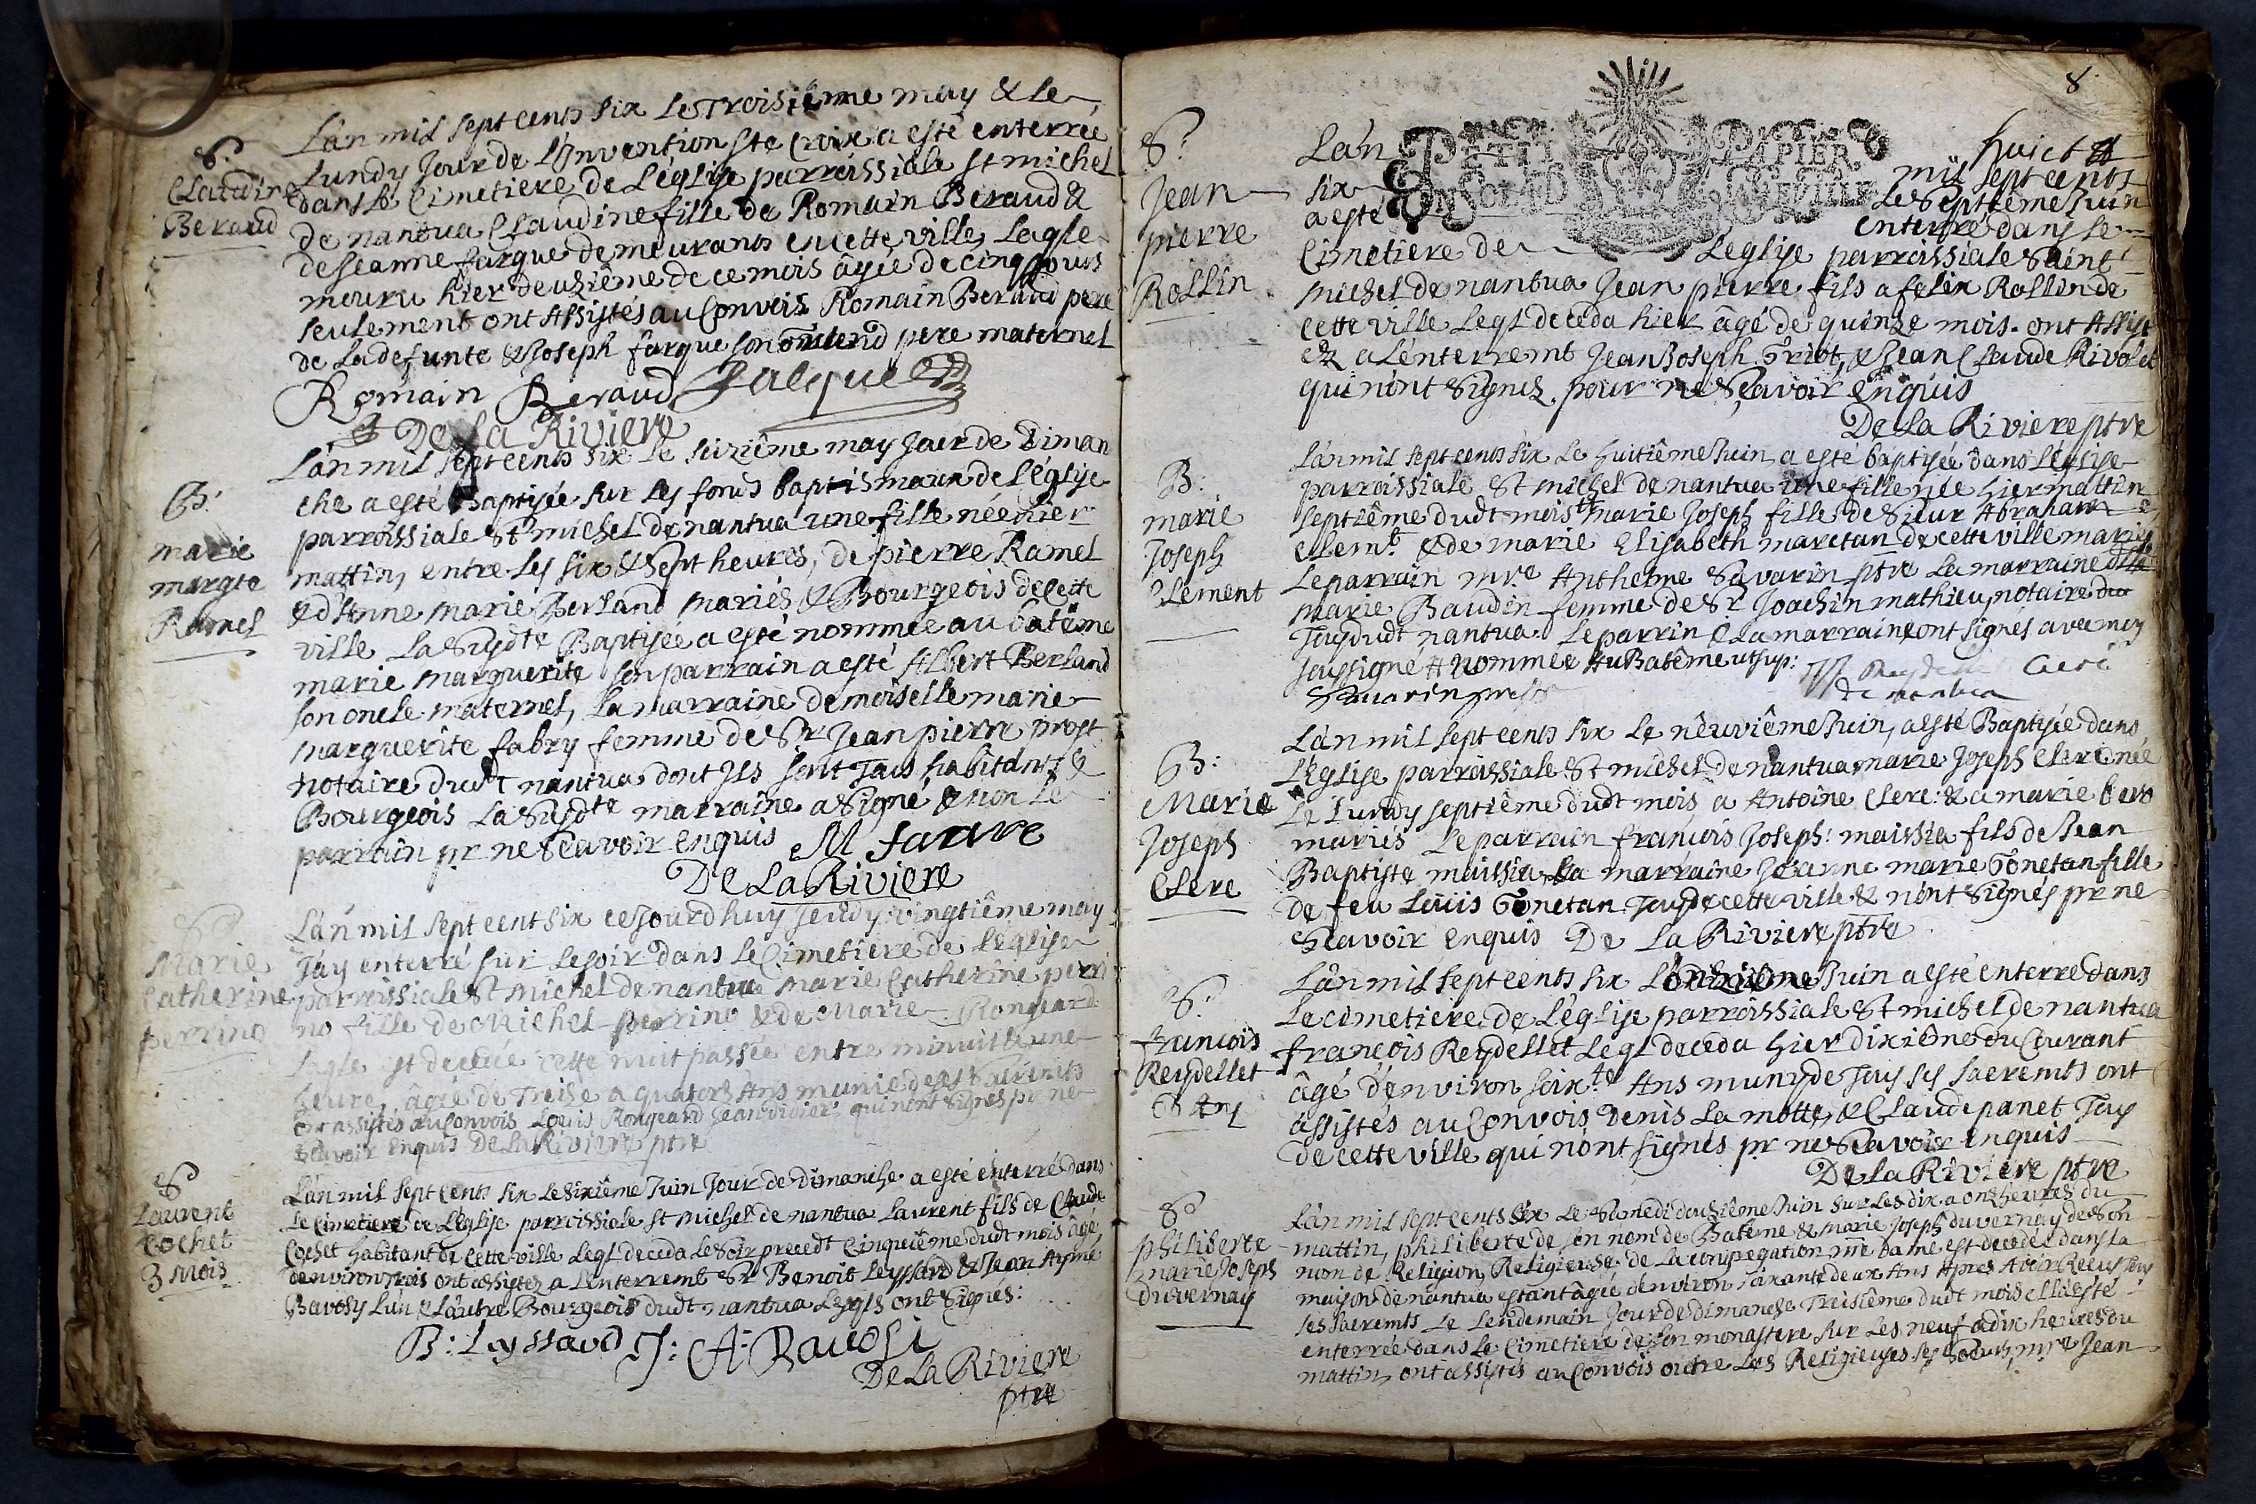 S.
Claudine
Beraud
L'an mil sept cents six Le Troisiême may & le
Lundy Jour de L'Invention Ste Croix a esté enterrée
dans le Cimetiere de L'église parroissiale st michel
de nantua Claudine fille de Romain Beraud &
de Jeanne fargue demeurants en cette ville, Laqle
mouru hier deuxiême de ce mois âgée de cinq Jours
seulement ont Assistés au Convois Romain Beraud pere
de La defunte & Joseph fargue son grand pere maternel
Romain Beraud falque
De La Riviere
B:
marie
margte
Ramel
L'an mil sept cents six Le seiziême may Jour de Diman
che a esté Baptisée sur les fonds baptismaux de L'église
parroissiale St michel de nantua une fille née hier
mattin, entre les six & sept heures, de pierre Ramel
& d'Anne marie Berland mariés & Bourgeois de cette
ville La susdte Baptisée a esté nommée au batême
marie marguerite son parrain a esté Albert Berland
son oncle maternel, La marraine demoiselle marie
marguerite fabry femme de Sr Jean pierre prost
notaire dudt nantua dont Ils sont Tous habitants &
Bourgeois La susdte marraine a signé & non le
parrain pr ne sçavoir enquis M favre
De La Riviere
S
Marie
Catherine
perrino
L'an mil sept cent six ce Jourd'huy Jeudy vingtiême may
J'ay enterré sur le soir dans le Cimetiere de L'église
parroissiale St Michel de nantua Marie Catherine perri
no fille de Michel perrino & de Marie Rongeard
Laqle est decedée cette nuit passée entre minuit & une
heure, âgée de Treise a quatorse Ans munie de ses sacremts
ont assistés au Convois Loüis Rongeard Jean didier qui n'ont signés pr ne
sçavoir enquis De La Riviere ptre
S
Laurent
Cochet
3 mois
L'an mil sept cents six Le sixiême Juin Jour de Dimanche a esté enterré dans
Le Cimetiere de L'église parroissiale st Michel de nantua Laurent fils de Claude
Cochet habitant de cette ville Leql deceda le soir precedt Cinquiême dudt mois âgé
d'environ trois ont assistez a L'enterremt Sr Benoit Leyssard & Jean Aymé
Bavosy L'un & L'autre Bourgeois dudt nantua Lesqls ont signés:
B: Leyssard J: A: Bavosi
De La Riviere
ptre
8
S:
Jean
pierre
Rollin
PETIT PAPIER
L'an
huict
mil sept cents
six
Le septiême Juin
a esté
enterré dans le
Cimetiere de L'eglise parroissiale Saint
Michel de nantua Jean pierre fils a felix Rollin de
cette ville Leql deceda hier âgé de quinze mois. ont Assist
ez a L'énterremt Jean Joseph Griot, & Jean Claude Rivolet
qui n'ont signez pour ne sçavoir enquis
De La Riviere ptre
B:
marie
Joseph
Clement
L'an mil sept cents six Le huitiême Juin a esté baptisée dans L'église
parroissiale St michel de nantua une fille née hier mattin
septiême dudt mois marie Joseph fille de Sieur Abraham
Clemt & de marie Elisabeth maretan de cette ville mariés
Le parrain mre Anthelme Savarin ptre La marraine dlle
marie Baudin femme de Sr Joachin mathieu notaire
Tous dudt nantua. Le parrin & La marraine ont signés avec moy
soussigné & nommée Au Batême ut sup: Curé
Savarin prestre de nantua
B:
Marie
Joseph
Clerc
L'an mil sept cents six Le neuviême Juin, a esté Baptisée dans
L'église parroissiale St michel de nantua marie Joseph Clerc née
Le Lundy septiême dudt mois a Antoine Clerc & a marie bero
mariés Le parrain françois Joseph: maissia fils de Jean
Baptiste maissia La marraine Jeanne marie Gonetan fille
de feu Loüis Gonetan Tous de cette ville & n'ont signés pr ne
sçavoir enquis De La Riviere ptre
S:
françois
Reydellet
L'an mil sept cents six L'onziême Juin a esté enterré dans
Le cimetiere de L'église parroissiale St michel de nantua
françois Reydellet Leql deceda hier dixiême du Courant
âgé d'environ soixte Ans muny de Tous ses sacremts ont
assistés au Convois Denis La motte, & Claude panet Tous
de cette ville qui n'ont signés pr ne sçavoir enquis
De La Riviere ptre
S:
philiberte
marie Joseph
duvernay
L'an mil sept cents six Le samedi douziême Juin sur les dix a onze heures du
mattin, philiberte de son nom de Batême & marie Joseph duvernay de son
nom de Religion, Religieuse de La congregation nre Dame est decedée dans La
maison de nantua estant âgée d'environ soixante deux Ans Apres Avoir Reçeu Tous
ses sacremts Le Lendemain Jour de dimanche Treisiême dudt mois ell'a esté
enterrée dans Le Cimetiere de son monastere sur Les neuf a dix heures du
mattin, ont assistés au Convois outre Les Religieuses ses soeurs, mre Jean